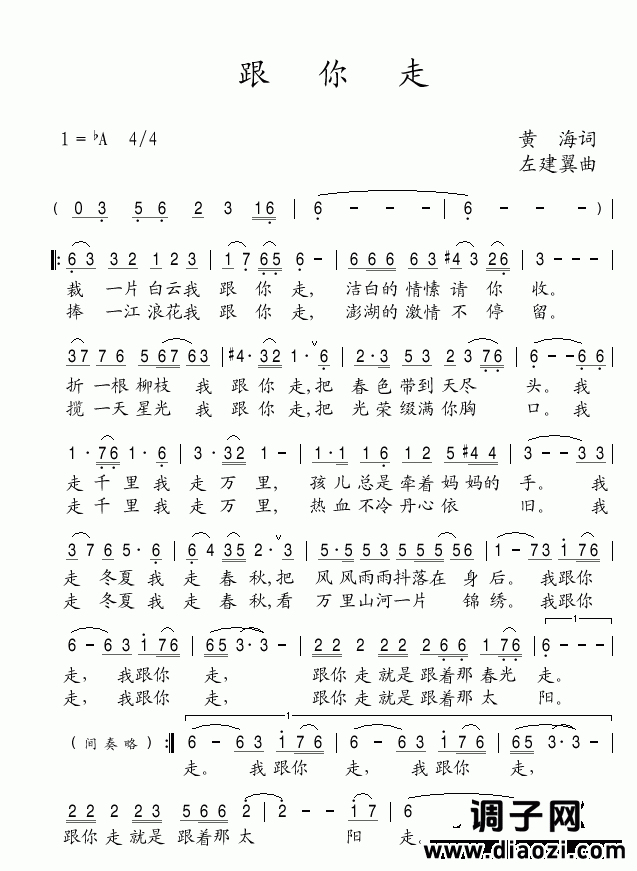 跟 你 走
1 = ♭A 4/4
黄 海词
左建翼曲
( 0 3 5 6 2 3 1 6 | 6 - - - | 6 - - - ) |
‖: 6 3 3 2 1 2 3 | 1 7 6 5 6 - | 6 6 6 6 3 #4 3 2 6 | 3 - - - |
裁 一片 白云我 跟 你 走, 洁白的 情愫 请 你 收。
捧 一江 浪花我 跟 你 走, 澎湖的 激情 不 停 留。
3 7 7 6 5 6 7 6 3 | #4 · 3 2 1 · 6 | 2 · 3 5 2 2 3 7 6 | 6 - - 6 6 |
折 一根 柳枝 我 跟 你 走,把 春 色 带到 天尽 头。我
揽 一天 星光 我 跟 你 走,把 光 荣 缀满 你胸 口。我
1 · 7 6 1 · 6 | 3 · 3 2 2 - | 1 · 1 1 6 1 2 5 #4 4 | 3 - - 3 3 |
走 千 里 我 走 万 里, 孩 儿 总 是 牵着 妈 妈的 手。 我
走 千 里 我 走 万 里, 热 血 不冷 丹心 依 旧。我
3 7 6 5 · 6 | 6 4 3 5 2 · 3 | 5 · 5 5 3 5 5 5 5 6 | 1 - 7 3 1 7 6 |
走 冬夏 我 走 春 秋,把 风 风雨雨抖落在 身 后。 我跟你
走 冬夏 我 走 春 秋,看 万 里山河一片 锦 绣。我跟你
6 - 6 3 1 7 6 | 6 5 3 3 · 3 | 2 2 2 2 2 2 6 6 1 7 6 | 6 - - |
走, 我跟你 走, 跟你 走 就是 跟着那 春光 走。
走, 我跟你 走, 跟你 走 就是 跟着那 太 阳。
( 间 奏 略 ) :‖ 6 - 6 3 1 7 6 | 6 - 6 3 1 7 6 | 6 5 3 3 · 3 |
走。 我 跟你 走, 我 跟你 走,
2 2 2 2 2 3 5 6 6 2 | 2 - - | 2 - 1 7 | 6
跟你 走 就是 跟着那 太 阳 走。
调子网
www.diaozi.com